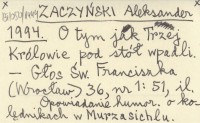 ZACZYŃSKI Aleksander
1994. O tym jak Trzej
Królowie pod stół wpadli.
– Głos Św. Franciszka
(Wrocław) 36, nr 1: 51, il.
[Opowiadanie humor. o ko-
lędnikach w Murzasichlu.